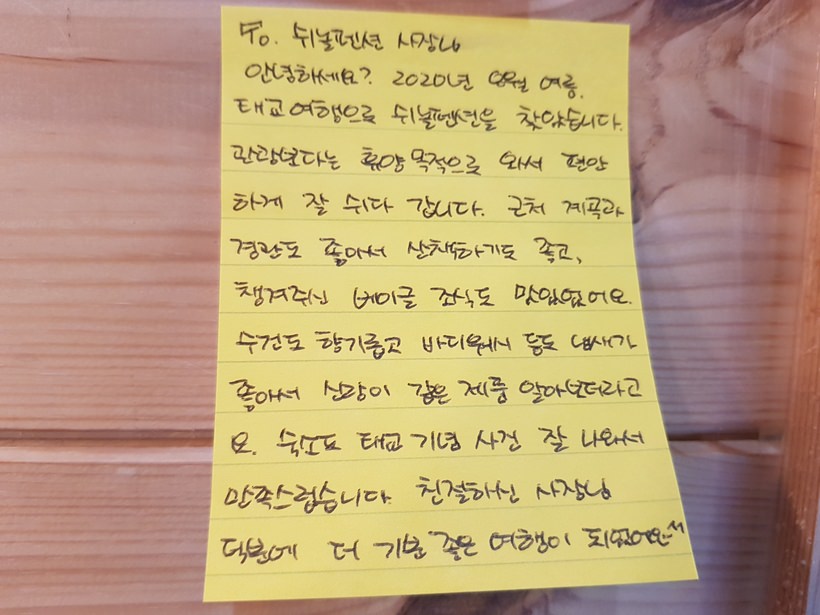 To. 쉬닐펜션 사장님
안녕하세요? 2020년 8월 여름,
태교여행으로 쉬닐펜션을 찾았습니다.
관광보다는 휴양 목적으로 와서 편안
하게 잘 쉬다 갑니다. 근처 계곡과
경관도 좋아서 산책하기도 좋고,
챙겨주신 베이글 조식도 맛있었어요.
수건도 향기롭고 바디워시 등도 냄새가
좋아서 신랑이 같은 제품 알아보더라고
요. 숙소도 태교 기념 사진 잘 나와서
만족스럽습니다. 친절하신 사장님
덕분에 더 기분 좋은 여행이 되었어요~^^